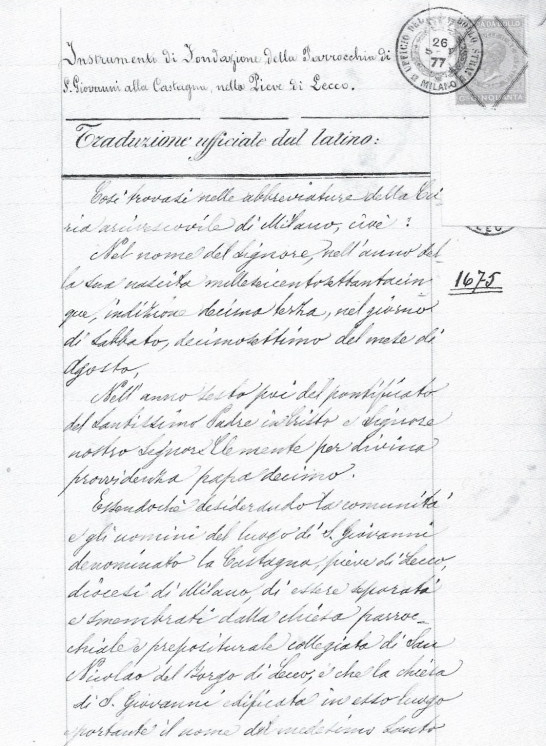 Instrumenti di Fondazione della Parrocchia di
S. Giovanni alla Castagna, nella Pieve di Lecco.
Traduzione ufficiale dal latino:
Così trovasi nelle abbreviature della Cu
ria arcivescovile di Milano, cioè:
Nel nome del Signore, nell'anno del
la sua nascita milleseicentosettantacin
que, indizione decima terza, nel giorno
di Sabbato, decimosettimo del mese di
Agosto,
1675
Nell'anno sesto poi del pontificato
del Santissimo Padre in Cristo e Signore
nostro Signor Clemente per divina
provvidenza papa decimo.
Essendochè desiderando la comunità
e gli uomini del luogo di S. Giovanni
denominato la Castagna, pieve di Lecco,
diocesi di Milano, di essere separati
e smembrati dalla chiesa parroc-
chiale e prepositurale collegiata di San
Nicolao del Borgo di Lecco, e che la chiesa
di S. Giovanni edificata in esso luogo
portante il nome del medesimo Santo
UFFICIO DEL BOLLO STRAORD
26
77
MILANO